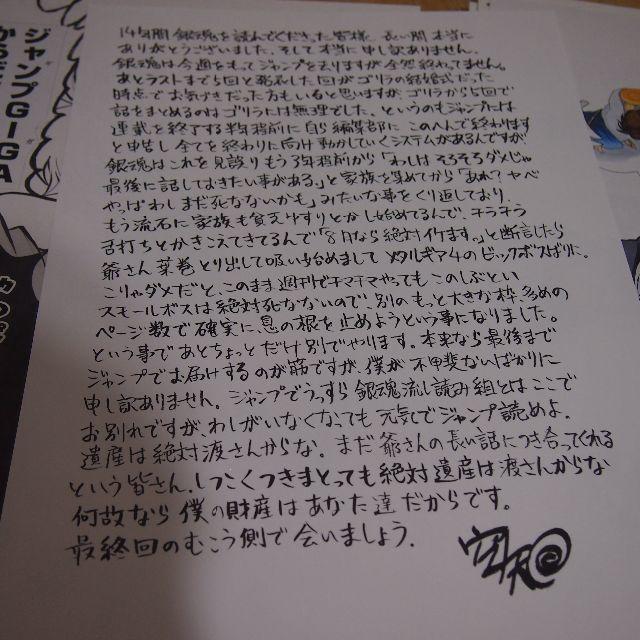 14年間銀魂を読んでくださった皆様、長い間本当に
ありがとうございました、そして本当に申し訳ありません。
銀魂は今週をもってジャンプを去りますが全然終わってません。
あとラストまで5回と発表した回がゴリラの結婚式だった
時点でお気づきだった方もいると思いますが、ゴリラから5回で
話をまとめるのはゴリラには無理でした、というのもジャンプには
連載を終了する数ヶ月前に自ら編集部に このへんで終わります
と申告し全てを終わりに向け動かしていくシステムがあるんですが
銀魂はこれを見誤りもう3ヶ月前から「わしは そろそろダメじゃ
最後に話しておきたい事がある」と家族を集めてから「あれ?ヤベ
やっぱわし まだ死なないかも」みたいな事をくり返しており、
もう流石に家族も貧乏ゆすりとかし始めてるんで、チラチラ
舌打ちとかきこえてきてるんで「8月なら絶対イケます。」と断言したら
爺さん 葉巻とり出して吸い始めまして メタルギア4のビックボスばりに。
こりゃダメだと、このまま週刊でチマチマやっても このしぶとい
スモールボスは絶対死なないので、別の もっと大きな枠、多めの
ページ数で確実に息の根を止めようという事になりました。
という事であとちょっとだけ別でやります。本来なら最後まで
ジャンプでお届けするのが筋ですが、僕が不甲斐ないばかりに
申し訳ありません。ジャンプでうっすら銀魂流し読み組とはここで
お別れですが、わしがいなくなっても元気でジャンプ読めよ。
遺産は絶対渡さんからな。まだ爺さんの長い話につき合ってくれる
という皆さん、しつこくつきまとっても絶対遺産は渡さんからな
何故なら僕の財産はあなた達だからです。
最終回のむこう側で会いましょう.
空知
ジャンプGIGA